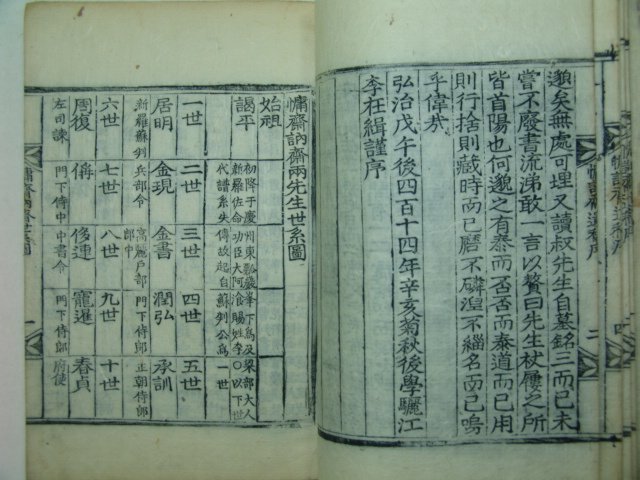 邈矣無處可埋又讀叔先生自墓銘三而已未
嘗不廢書流涕敢一言以贅曰先生杖屨之所
皆首陽也何邈之有泰而否否而泰道而已用
則行捨則藏時而已磨不磷涅不緇名而已嗚
乎偉哉
弘治戊午後四百十四年辛亥菊秋後學驪江
李在緝謹序
慵齋訥齋兩先生世系圖
始祖
謁平
初降于慶州東瓢巖峯下爲及梁部大人
新羅佐命功臣大阿飡賜姓李○以下世
代譜系失傳故起自蘇判公爲一世
一世 二世 三世 四世 五世
居明 金現 金書 潤弘 承訓
新羅蘇判 兵部令 高麗戶部郎中 門下侍郎 正朝侍郎
六世 七世 八世 九世 十世
周復 侢 侈連 寵暹 春貞
左司諫 門下侍中 中書令 門下侍郎 府使
慵齋訥齋世系圖
一
二